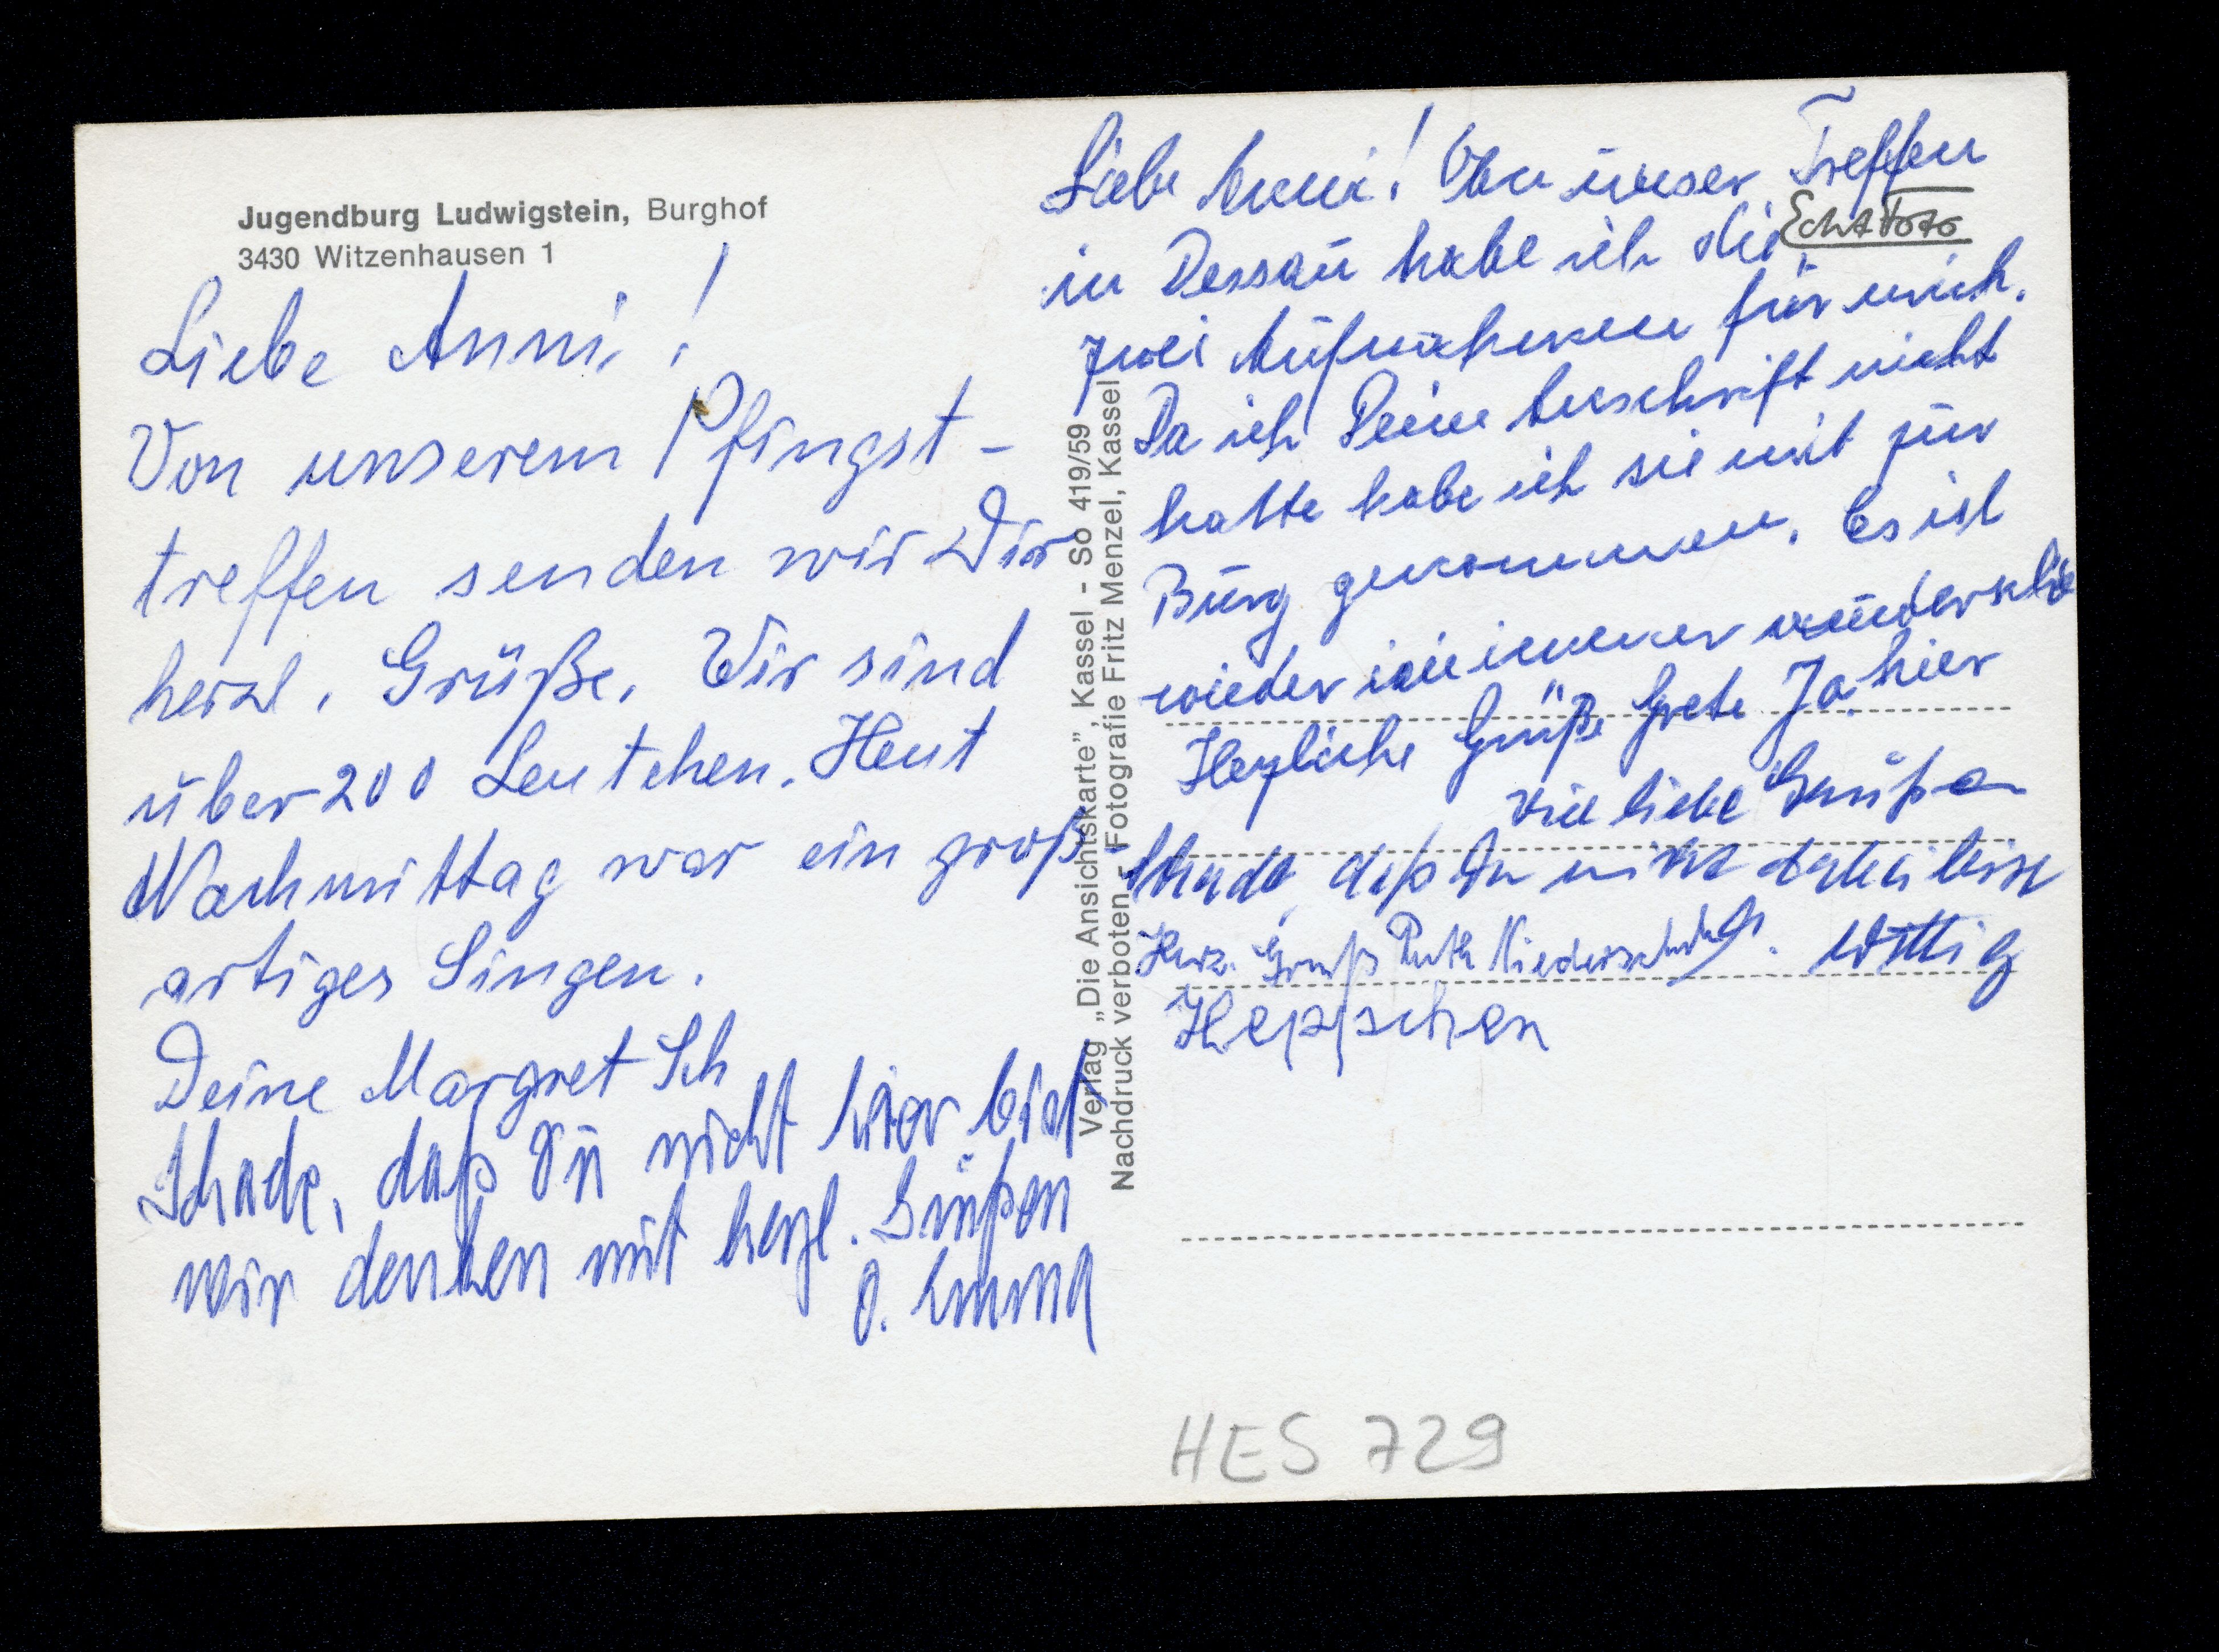 Jugendburg Ludwigstein, Burghof
3430 Witzenhausen 1
Liebe Anni!
Von unserem Pfingst-
treffen senden wir Dir
herzl. Grüße. Wir sind
über 200 Leutchen. Heut
Nachmittag war ein groß-
artiges Singen.
Deine Margret Sch
Schade, daß Du nicht hier bist
wir denken mit herzl. Grüßen
O. Emma
Verlag „Die Ansichtskarte”, Kassel - So 419/59
Nachdruck verboten - Fotografie Fritz Menzel, Kassel
Liebe Anni! Von unser Treffen
Echt Foto
in Dessau habe ich die
zwei Aufnahmen für mich.
Da ich Deine Anschrift nicht
hatte habe ich sie mit zur
Burg genommen. Es ist
wieder wie immer
hier
Herzliche Grüße Grete Ja.
viele liebe Grüße
Schade, daß Du nicht dabei bist
Herz. Gruß Ruth
Wittig
Heppchen
HES 729